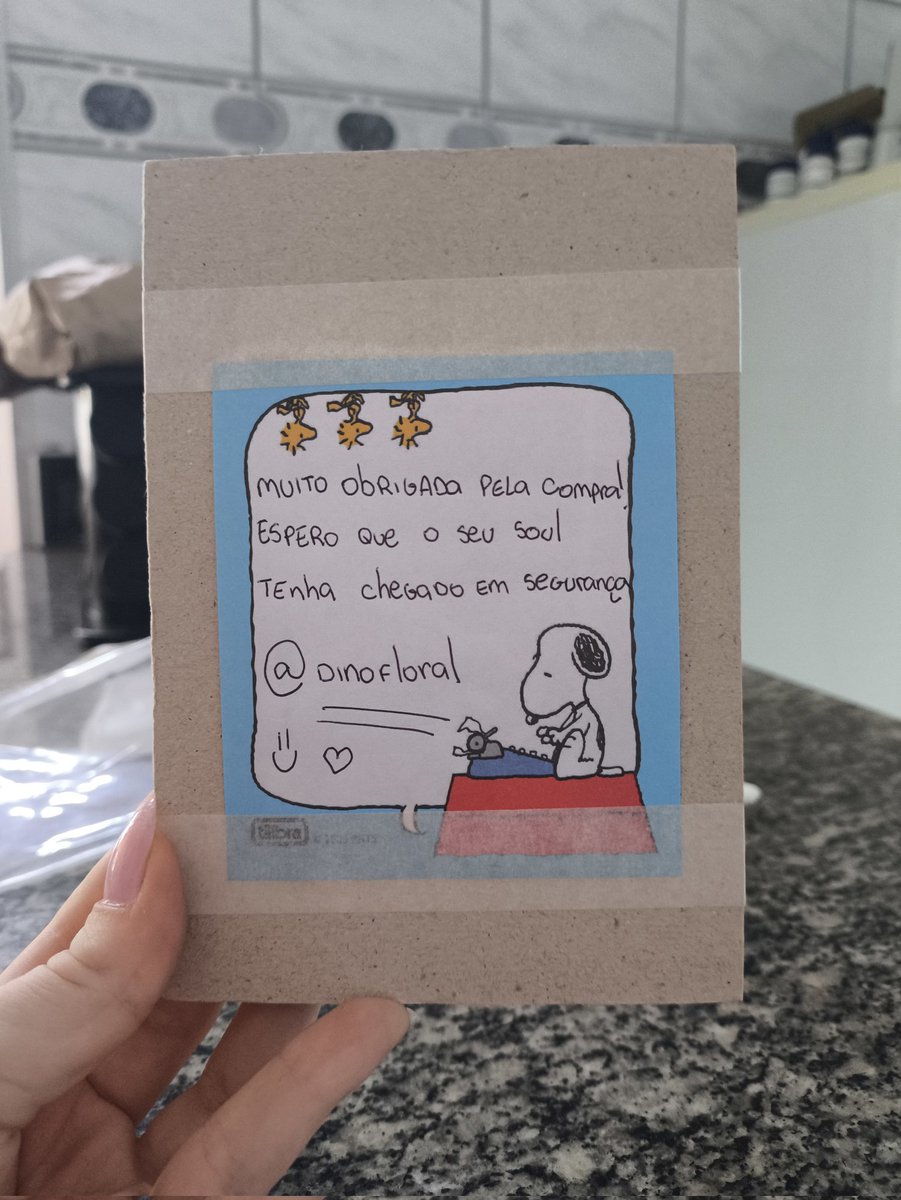 MUITO ObRIGADA PELA Compra!
ESPERO QUE O SEU SOUL
TENha chEGADO EM SEGURANÇA
@DINOFLORAL
tilibra